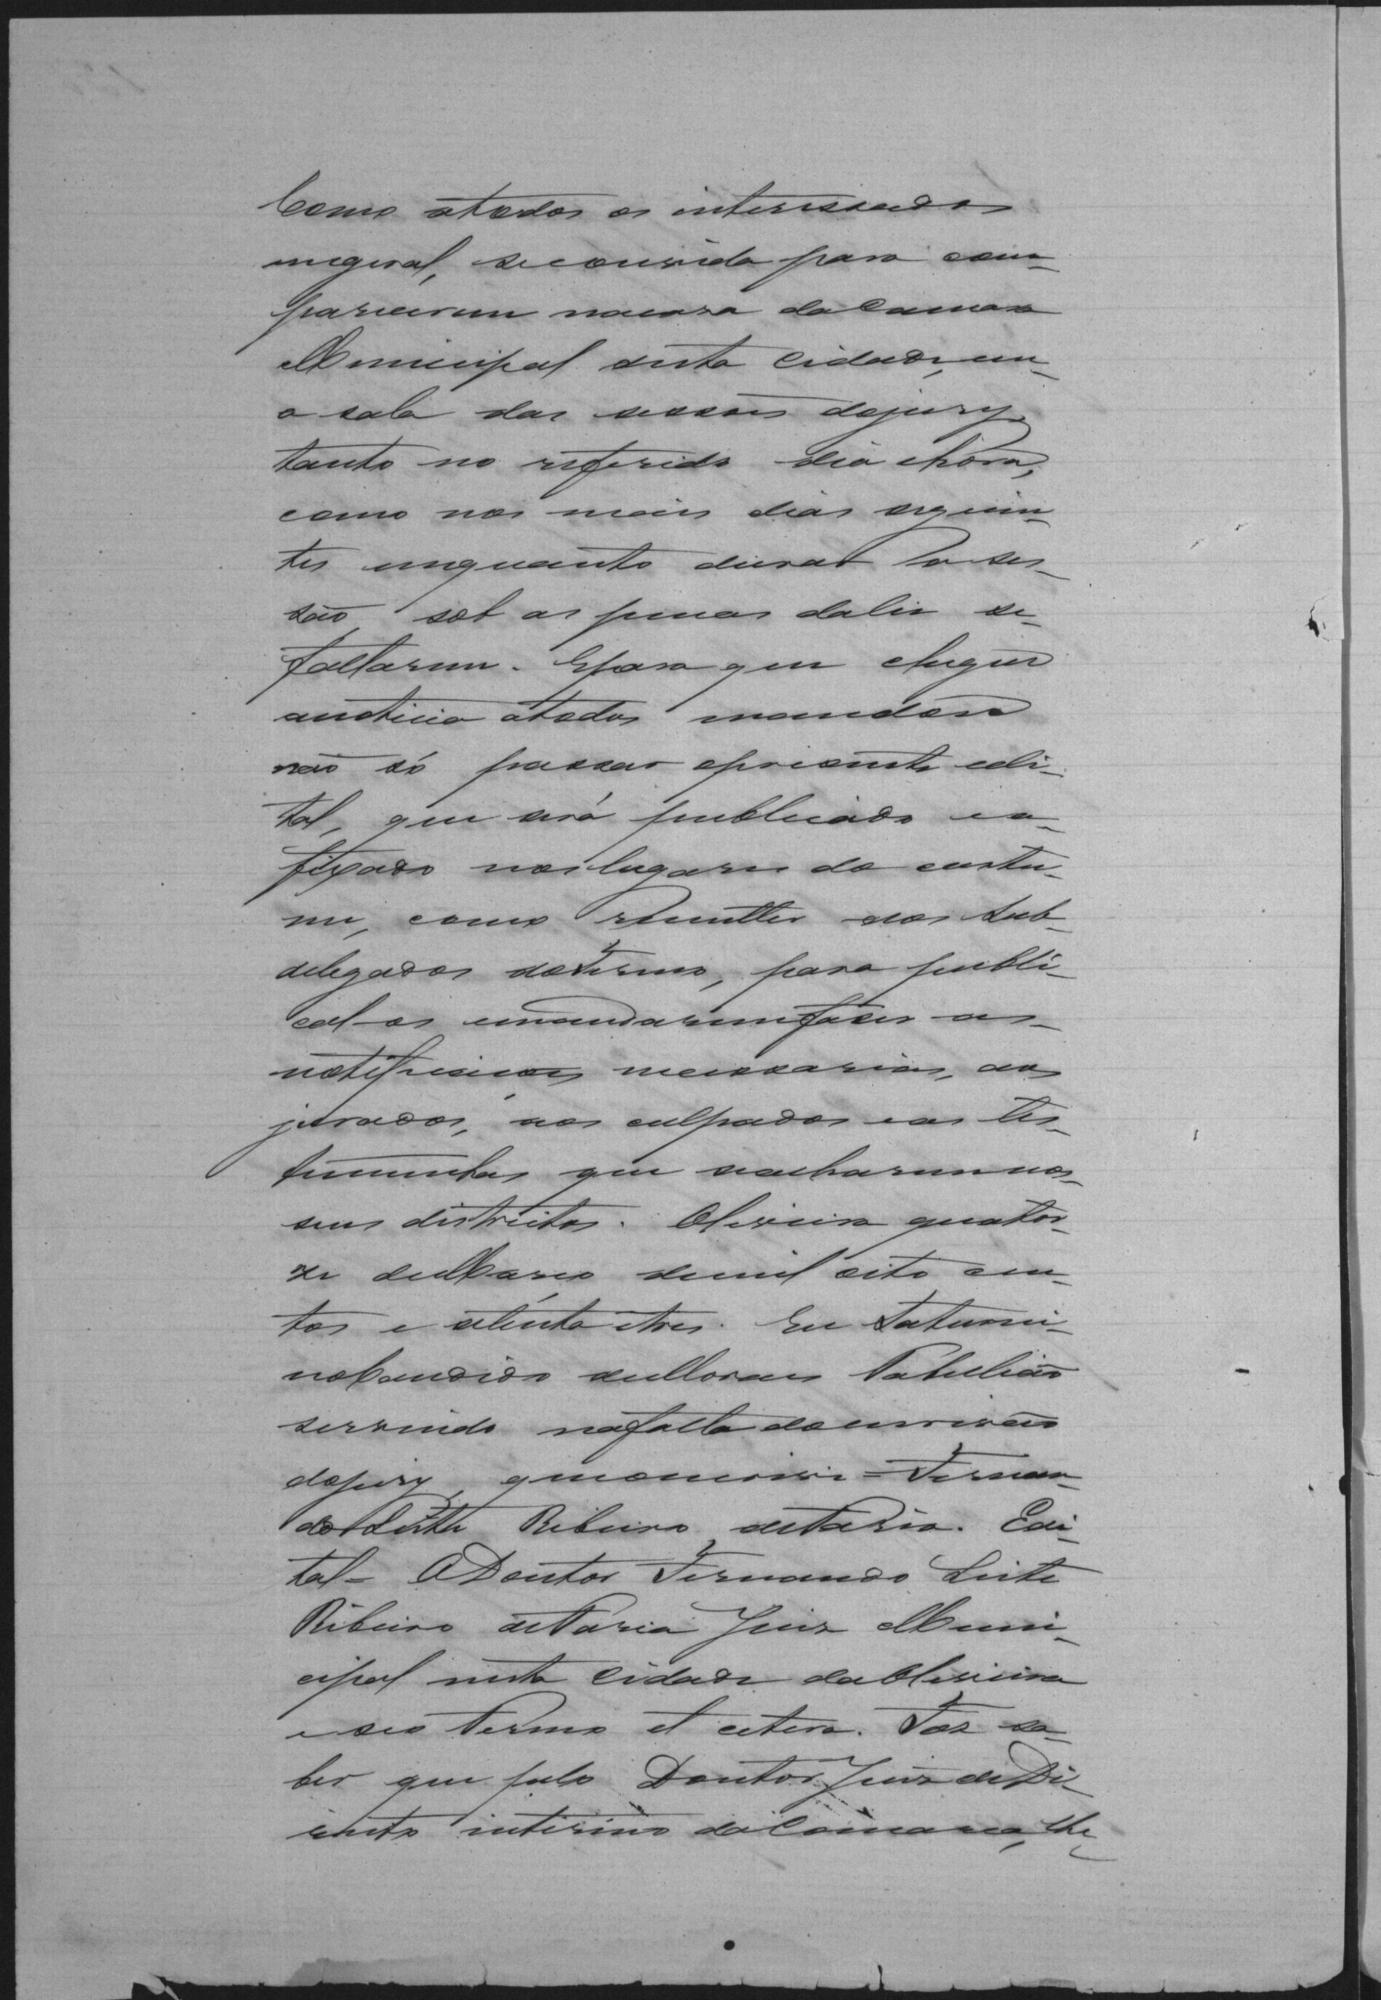 Como atodos os interessados
emgeral, seconvida para com-
parecerem nacasa daCamara
Municipal desta Cidade, em
a sala das sessões dojury
tanto no referido dia ehora,
como nos mais dias seguin-
tes emquanto durar a ses-
são, sob as penas dalei se
faltarem. Epara que chegue
anoticia atodos mandou
não só passar opresente edi-
tal, que será publicado ea-
fixado noslugares do custu-
me, como remetter aos Sub-
delegados doTermo, para publi-
cal-os emandaremfazer as
notificações necessarias, aos
jurados, aos culpados eas tes-
temunhas que seacharem nos
seus districtos. Oliveira quator-
ze deMarço demil oito cen-
tos e oitenta etres. Eu Saturni-
noCandido deMoraes Tabelião
servindo nafalta doescrivão
dojury queoescrevi = Fernan-
do Leite Ribeiro deFaria. Edi-
tal = ODoutor Fernando Leite
Ribeiro deFaria Juiz Muni-
cipal nesta Cidade daOliveira
e seo Termo et cetera. Faz sa-
ber que pelo Doutor Juiz deDi-
reito interino daComarca, lhe